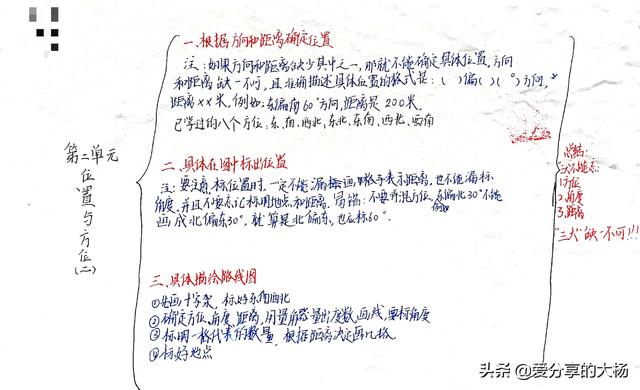 第二单元
位置与方位
(二)
一、根据方向和距离确定位置
注:如果方向和距离缺少其中之一,那就不能确定具体位置,方向
和距离缺一不可,且准确描述具体位置的格式是:( )偏( )( °)方向,
距离××米,例如:东偏南60°方向,距离是200米。
已学过的八个方位:东、南、西、北、东北、东南、西北、西南
二、具体在图中标出位置
注:要注意,标位置时,一定不能漏标
表示距离,也不能漏标
角度,并且不要忘记标明地点和距离,
不要弄混方位,东偏北30°不能
画成北偏东30°,就算是北偏东,也应标60°.
三、具体描绘路线图
①先画十字架,标好东南西北
②确定方位、角度、距离,用量角器量出度数,画线,要标角度
③标明一格代表的数量,根据距离决定画几格.
④标好地点
总结:
三大要点:
1.方位
2.角度
3.距离
"三大"缺一不可!!!
头条 @爱分享的大杨